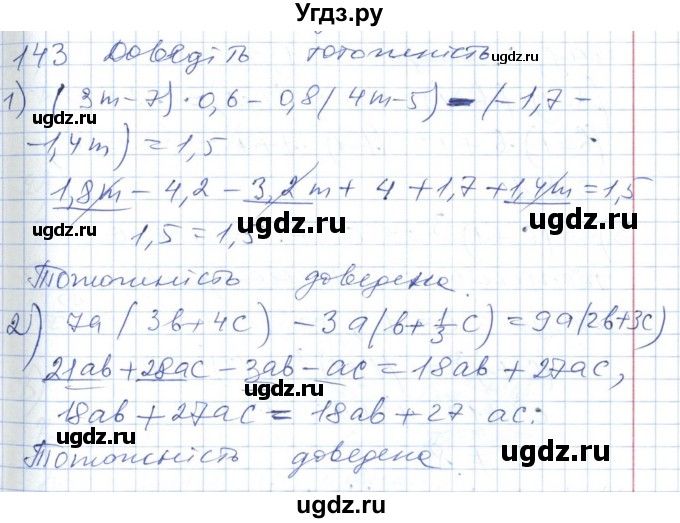 Угдз.ру
143 Доведіть тотожність:
ugdz.ru ugdz.ru
1) (3m-7)·0,6-0,8(4m-5)-(-1,7-
ugdz.ru
-1,4m)=1,5
ugdz.ru ugdz.ru
1,8m-4,2-3,2m+4+1,7+1,4m=1,5
ugdz.ru
1,5=1,5
ugdz.ru ugdz.ru
Тотожність доведена.
ugdz.ru
2) 7a(3b+4c)-3a(b+1/3c)=9a(2b+3c)
ugdz.ru ugdz.ru
21ab+28ac-3ab-ac=18ab+27ac,
ugdz.ru
18ab+27ac=18ab+27 ac:
ugdz.ru ugdz.ru
Тотожність доведена.
ugdz.ru